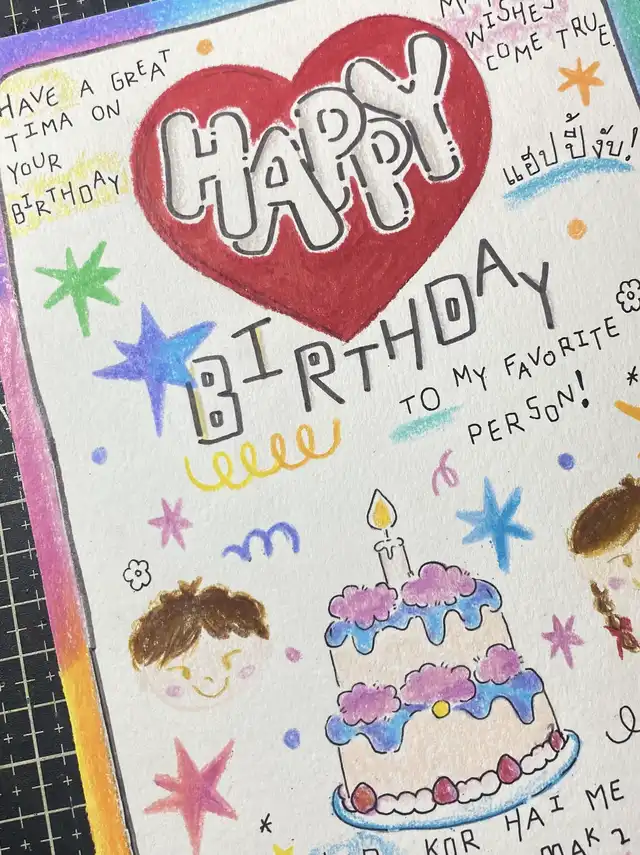 HAVE A GREAT
TIMA ON
YOUR
BIRTHDAY
WISHES
COME TRUE.
แฮปปี้งับ!
HAPPY
BIRTHDAY
TO MY FAVORITE
PERSON!
KOR HAI ME
MAK2